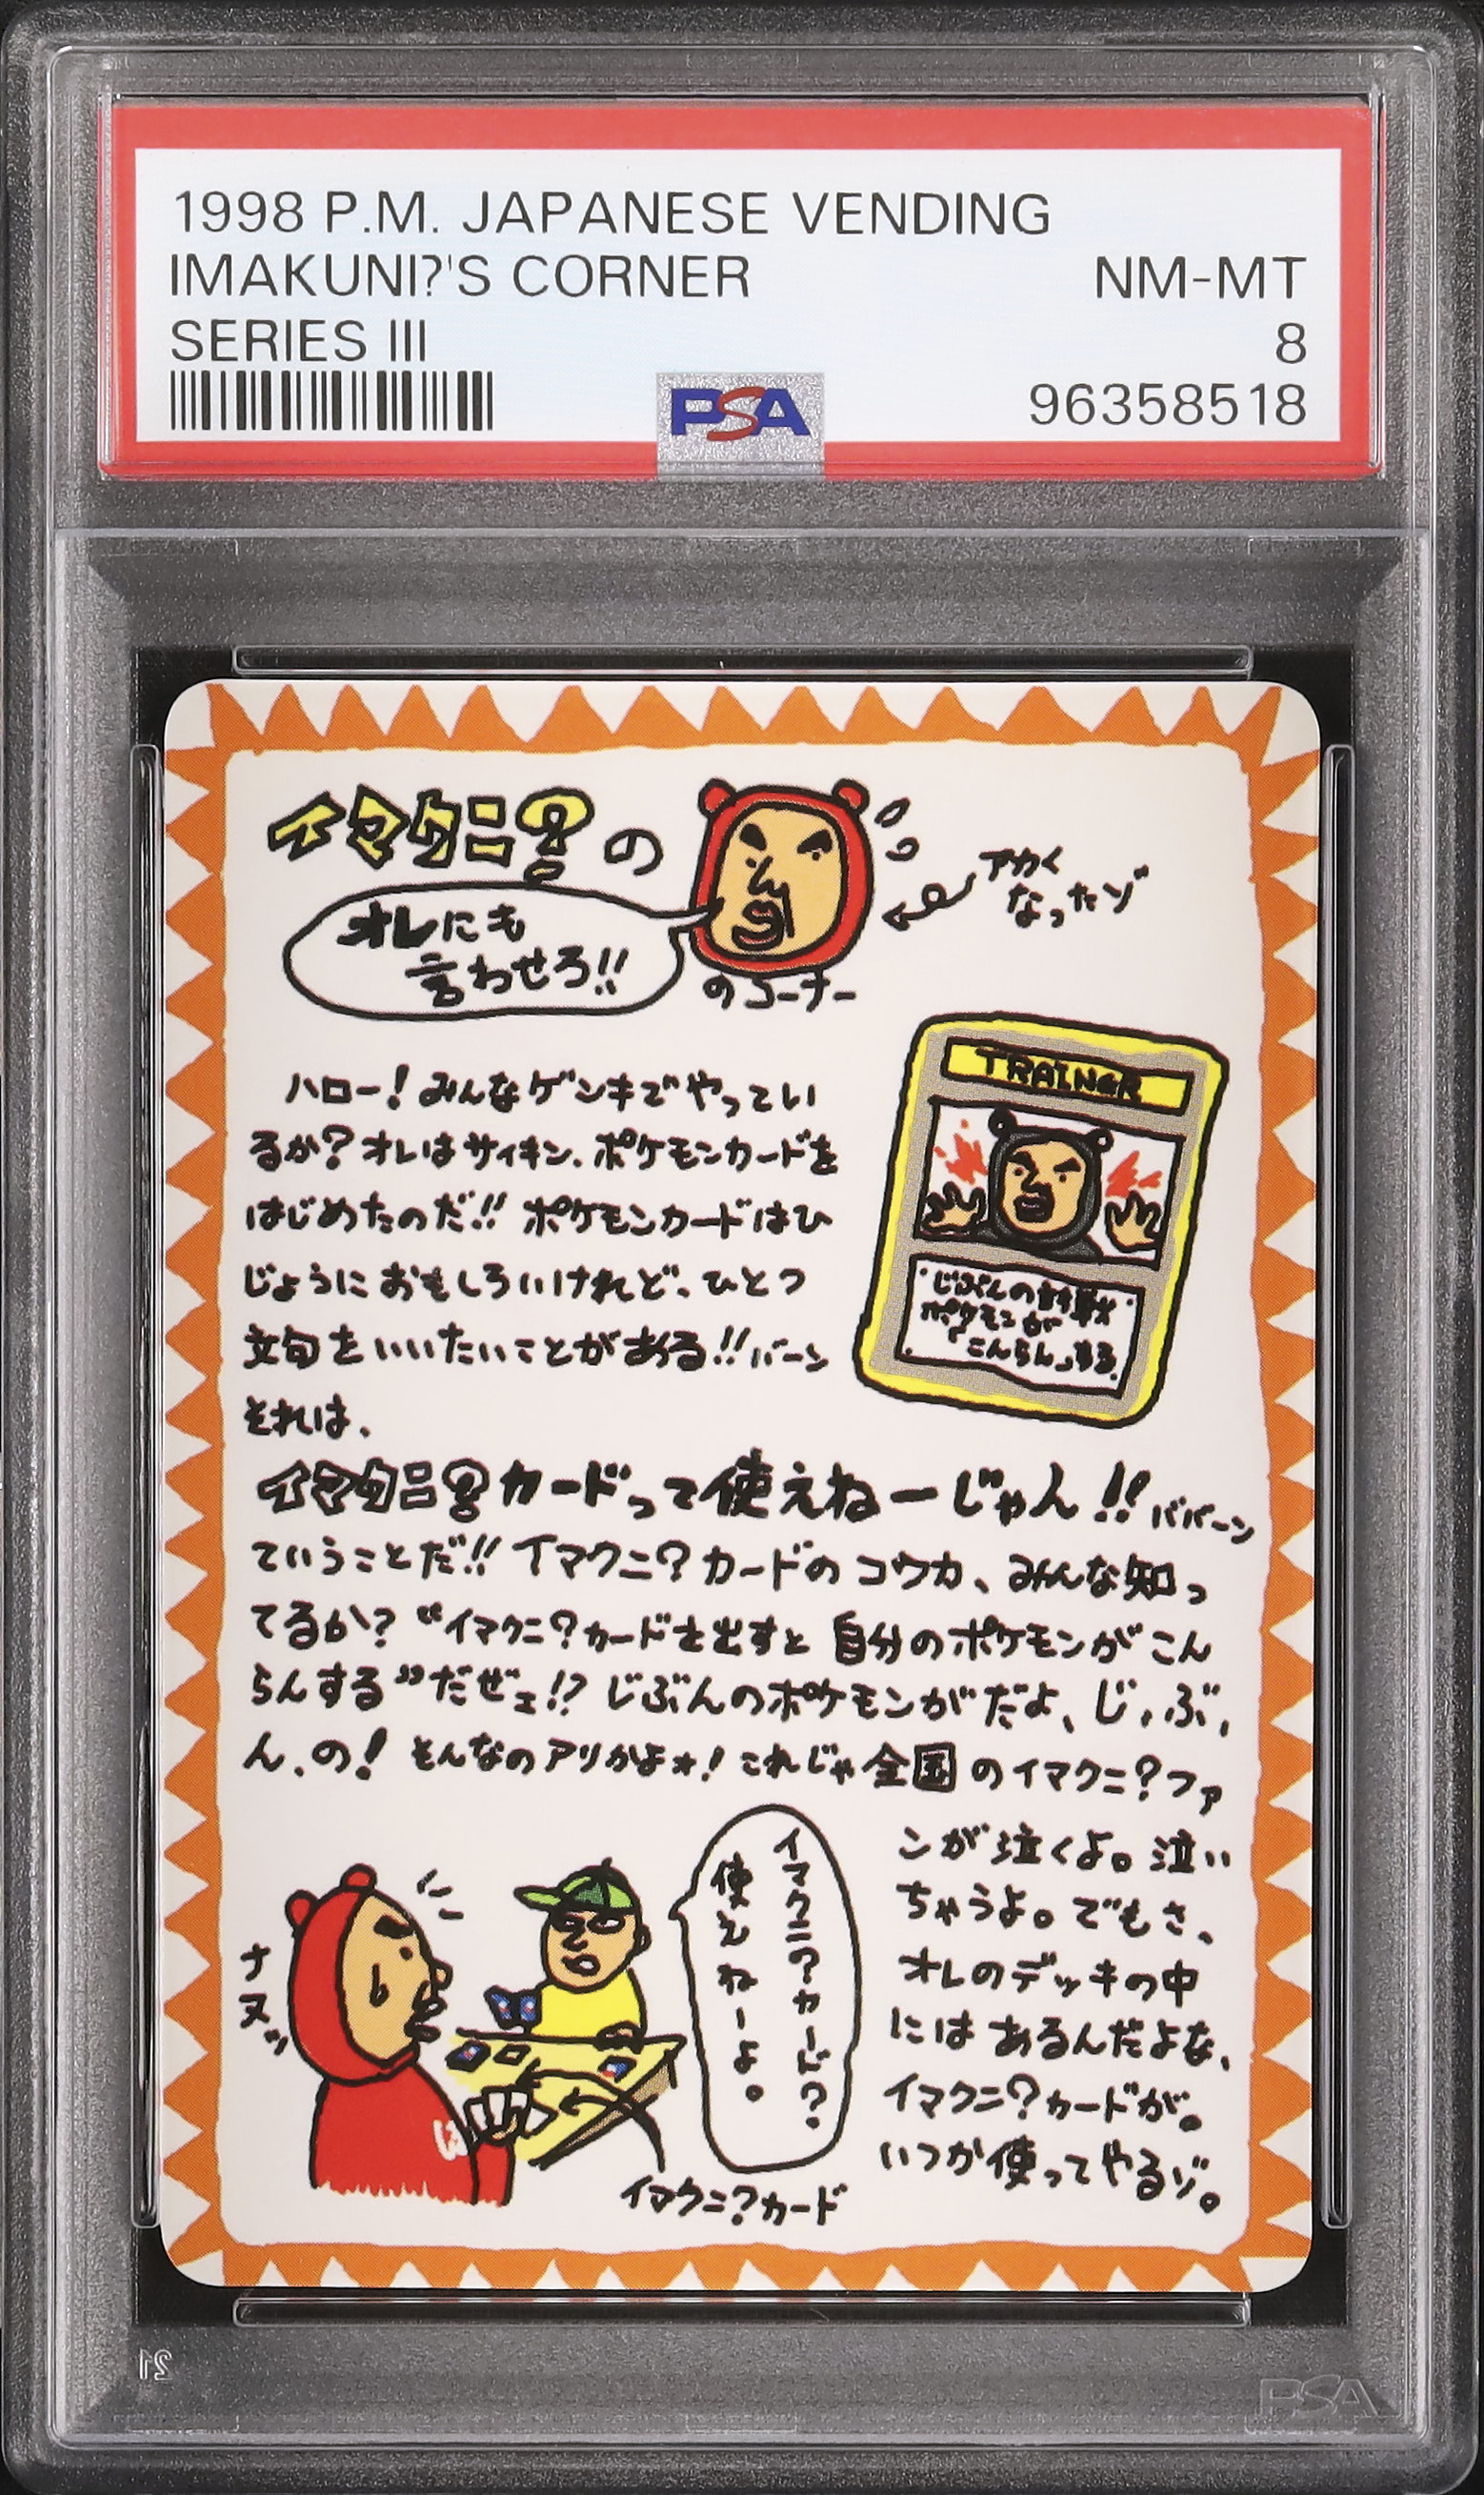 1998 P.M. JAPANESE VENDING
IMAKUNI?'S CORNER
NM-MT
SERIES III
8
PSA
96358518
イマクニ?の
オレにも
言わせろ!!
のコーナー
アカく
なったゾ
ハロー!みんなゲンキでやってい
るか?オレはサイキン、ポケモンカードを
はじめたのだ!!ポケモンカードはひ
じょうにおもしろいけれど、ひとつ
文句をいいたいことがある!!バーン
それは、
TRAINER
・じぶんの対戦・
ポケモンが
・「こんらん」する.
イマクニ?カードって使えねーじゃん!!ババーン
ていうことだ!!イマクニ?カードのコウカ、みんな知っ
てるか?“イマクニ?カードを出すと自分のポケモンがこん
らんする”だぜェ!?じぶんのポケモンがだよ、じ、ぶ、
ん、の!そんなのアリかよォ!これじゃ全国のイマクニ?ファ
ンが泣くよ。泣い
ちゃうよ。でもさ、
オレのデッキの中
にはあるんだよな、
イマクニ?カードが。
いつか使ってやるゾ。
ナヌッ
イマクニ?カード?
使えねーよ。
イマクニ?カード
21
PSA